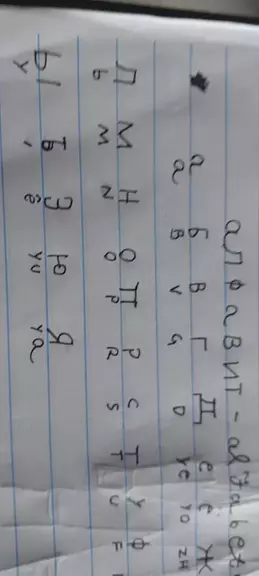 алфавит -
а б в г Д е ё Ж
a B V G D YE YO ZH
Л М Н О П Р С Т У Ф
L M N O P R S T U F
Ы Ъ Э Ю Я
Y ' ê YU YA